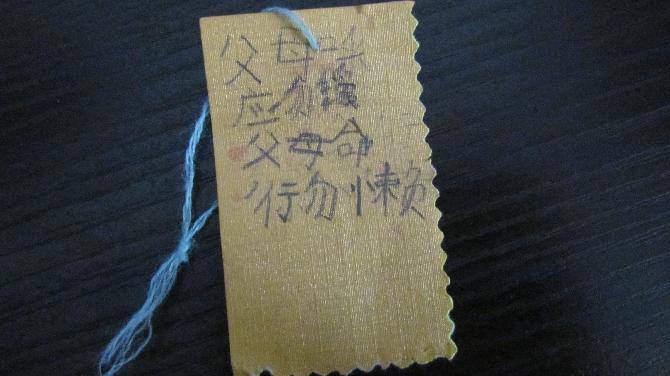 父母呼
应勿缓
父母命
行勿懒